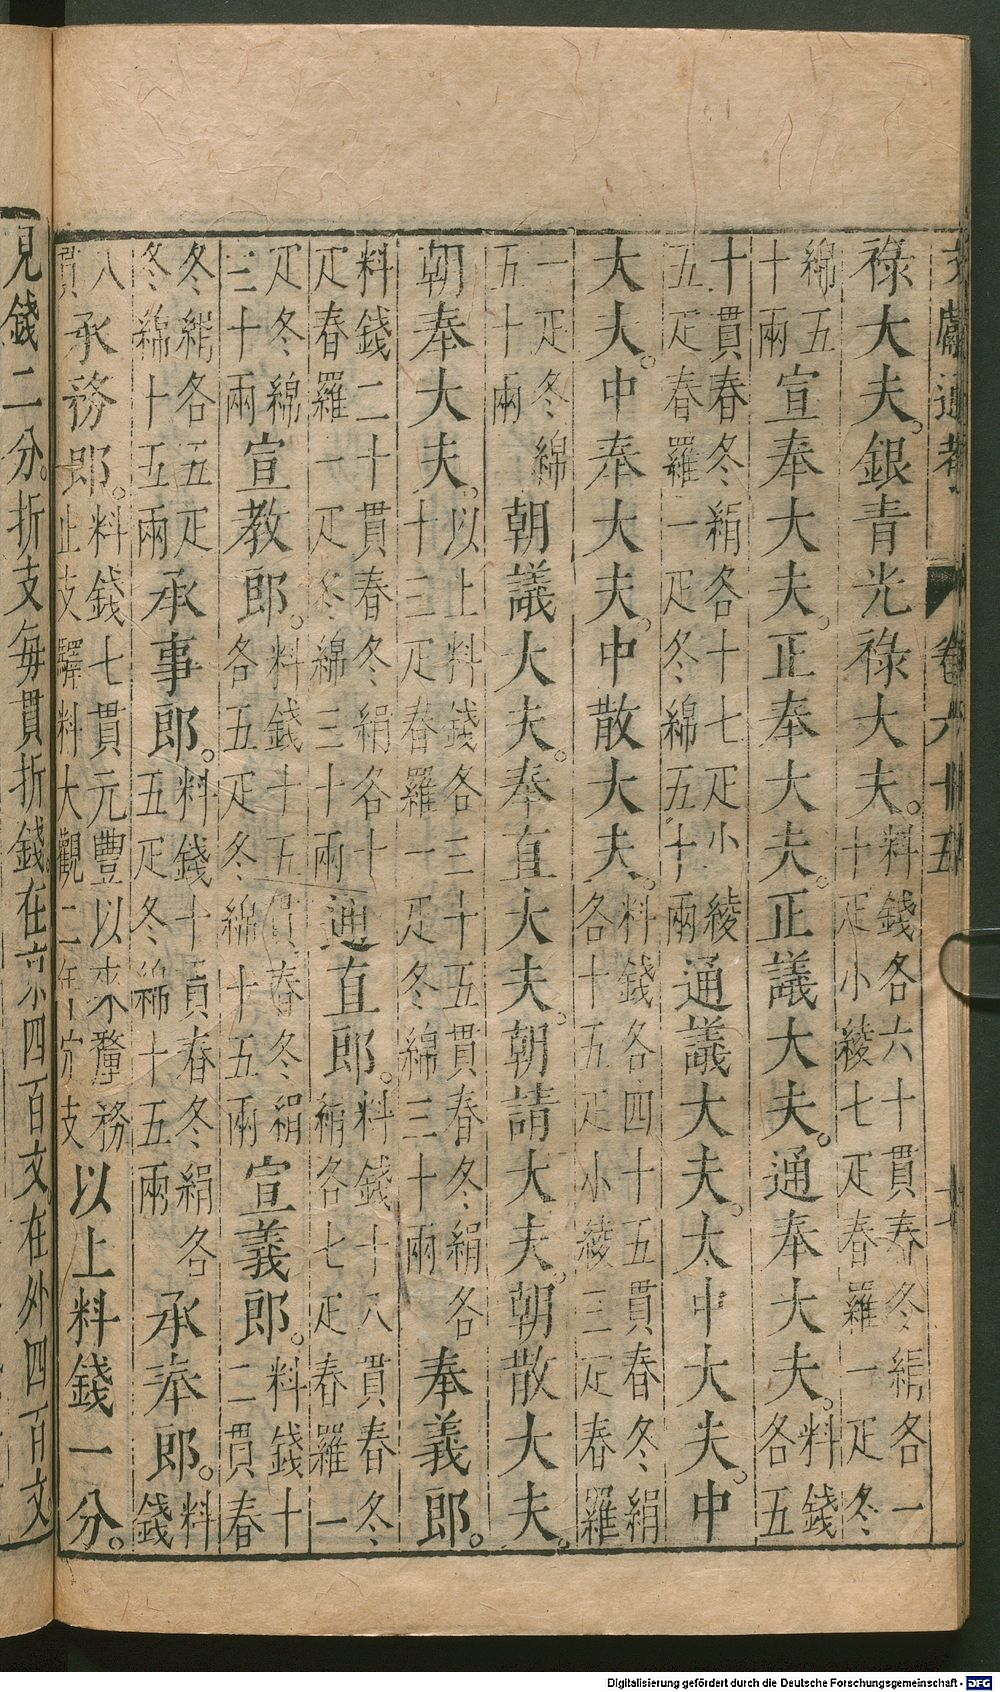 文獻通考 卷六十五
祿大夫。銀青光祿大夫。料錢各六十貫春冬絹各一十疋小綾七疋春羅一疋冬
綿五十兩宣奉大夫。正奉大夫。正議大夫。通奉大夫。料錢各五
十貫春冬絹各十七疋小綾五疋春羅一疋冬綿五十兩通議大夫。太中大夫。中
大夫。中奉大夫。中散大夫。料錢各四十五貫春冬絹各十五疋小綾三疋春羅
一疋冬綿五十兩朝議大夫。奉直大夫。朝請大夫。朝散大夫。
朝奉大夫。以上料錢各三十五貫春冬絹各十三疋春羅一疋冬綿三十兩奉義郎。
料錢二十貫春冬絹各十疋春羅一疋冬綿三十兩通直郎。料錢十八貫春冬絹各七疋春羅一
疋冬綿三十兩宣教郎。料錢十五貫春冬絹各五疋冬綿十五兩宣義郎。料錢十二貫春
冬絹各五疋冬綿十五兩承事郎。料錢十貫春冬絹各五疋冬綿十五兩承奉郎。料錢
八貫承務郎。料錢七貫元豐以來釐務止支驛料大觀二年支以上料錢一分。
見錢二分。折支每貫折錢在京四百文在外四百文
Digitalisierung gefördert durch die Deutsche Forschungsgemeinschaft - DFG